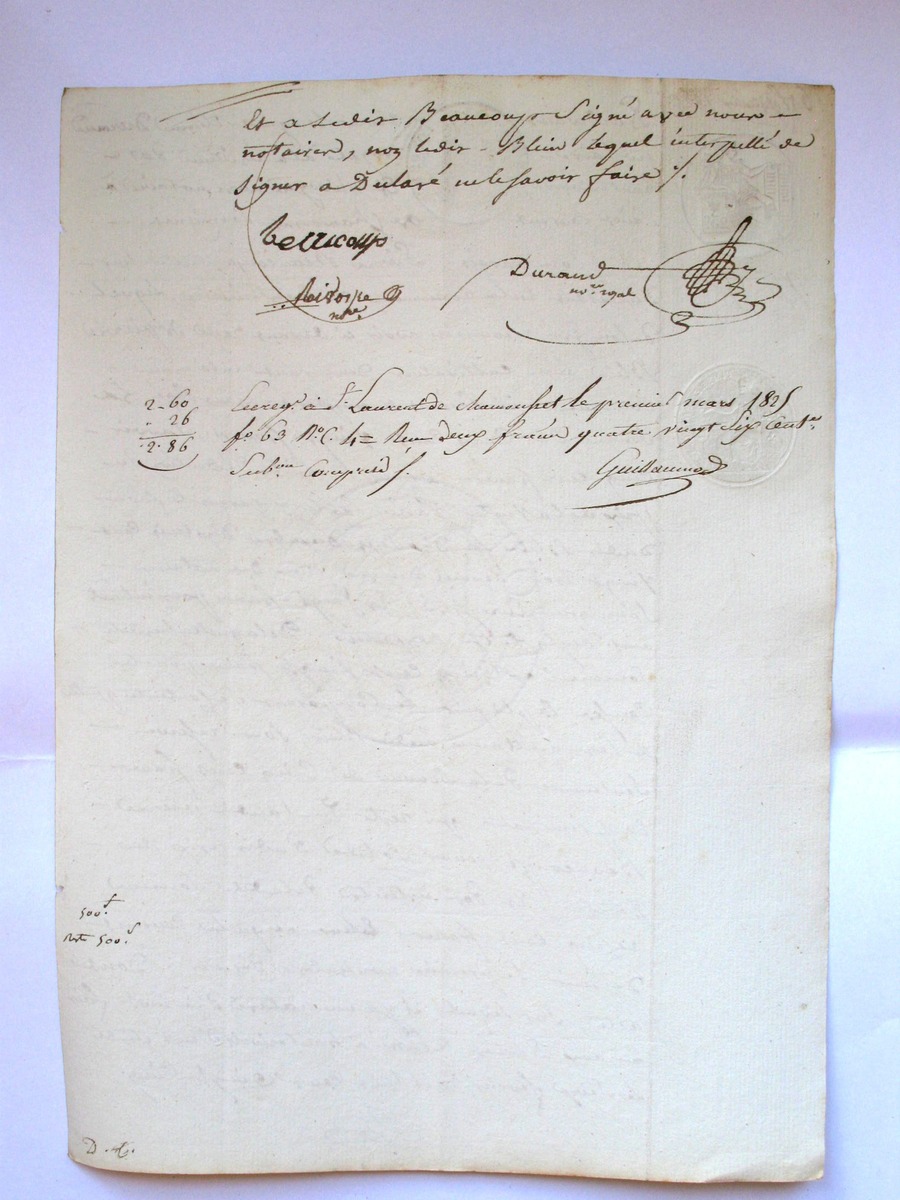 Et a Ledit Beaucoup Signé avec nous
notaires, non ledit Blein lequel interpellé de
signer a Declaré ne le savoir faire ./.
beaucoup
Durand
no.re royal
n.re
2-60
26
2-86
Enreg.é à St Laurent de chamousset le premier mars 1825
fo 63 Ro C. 4= Reçu deux francs quatre vingt Six Cent.es
Subon Compris ./.
Guillaumod
500f
Reste 500f